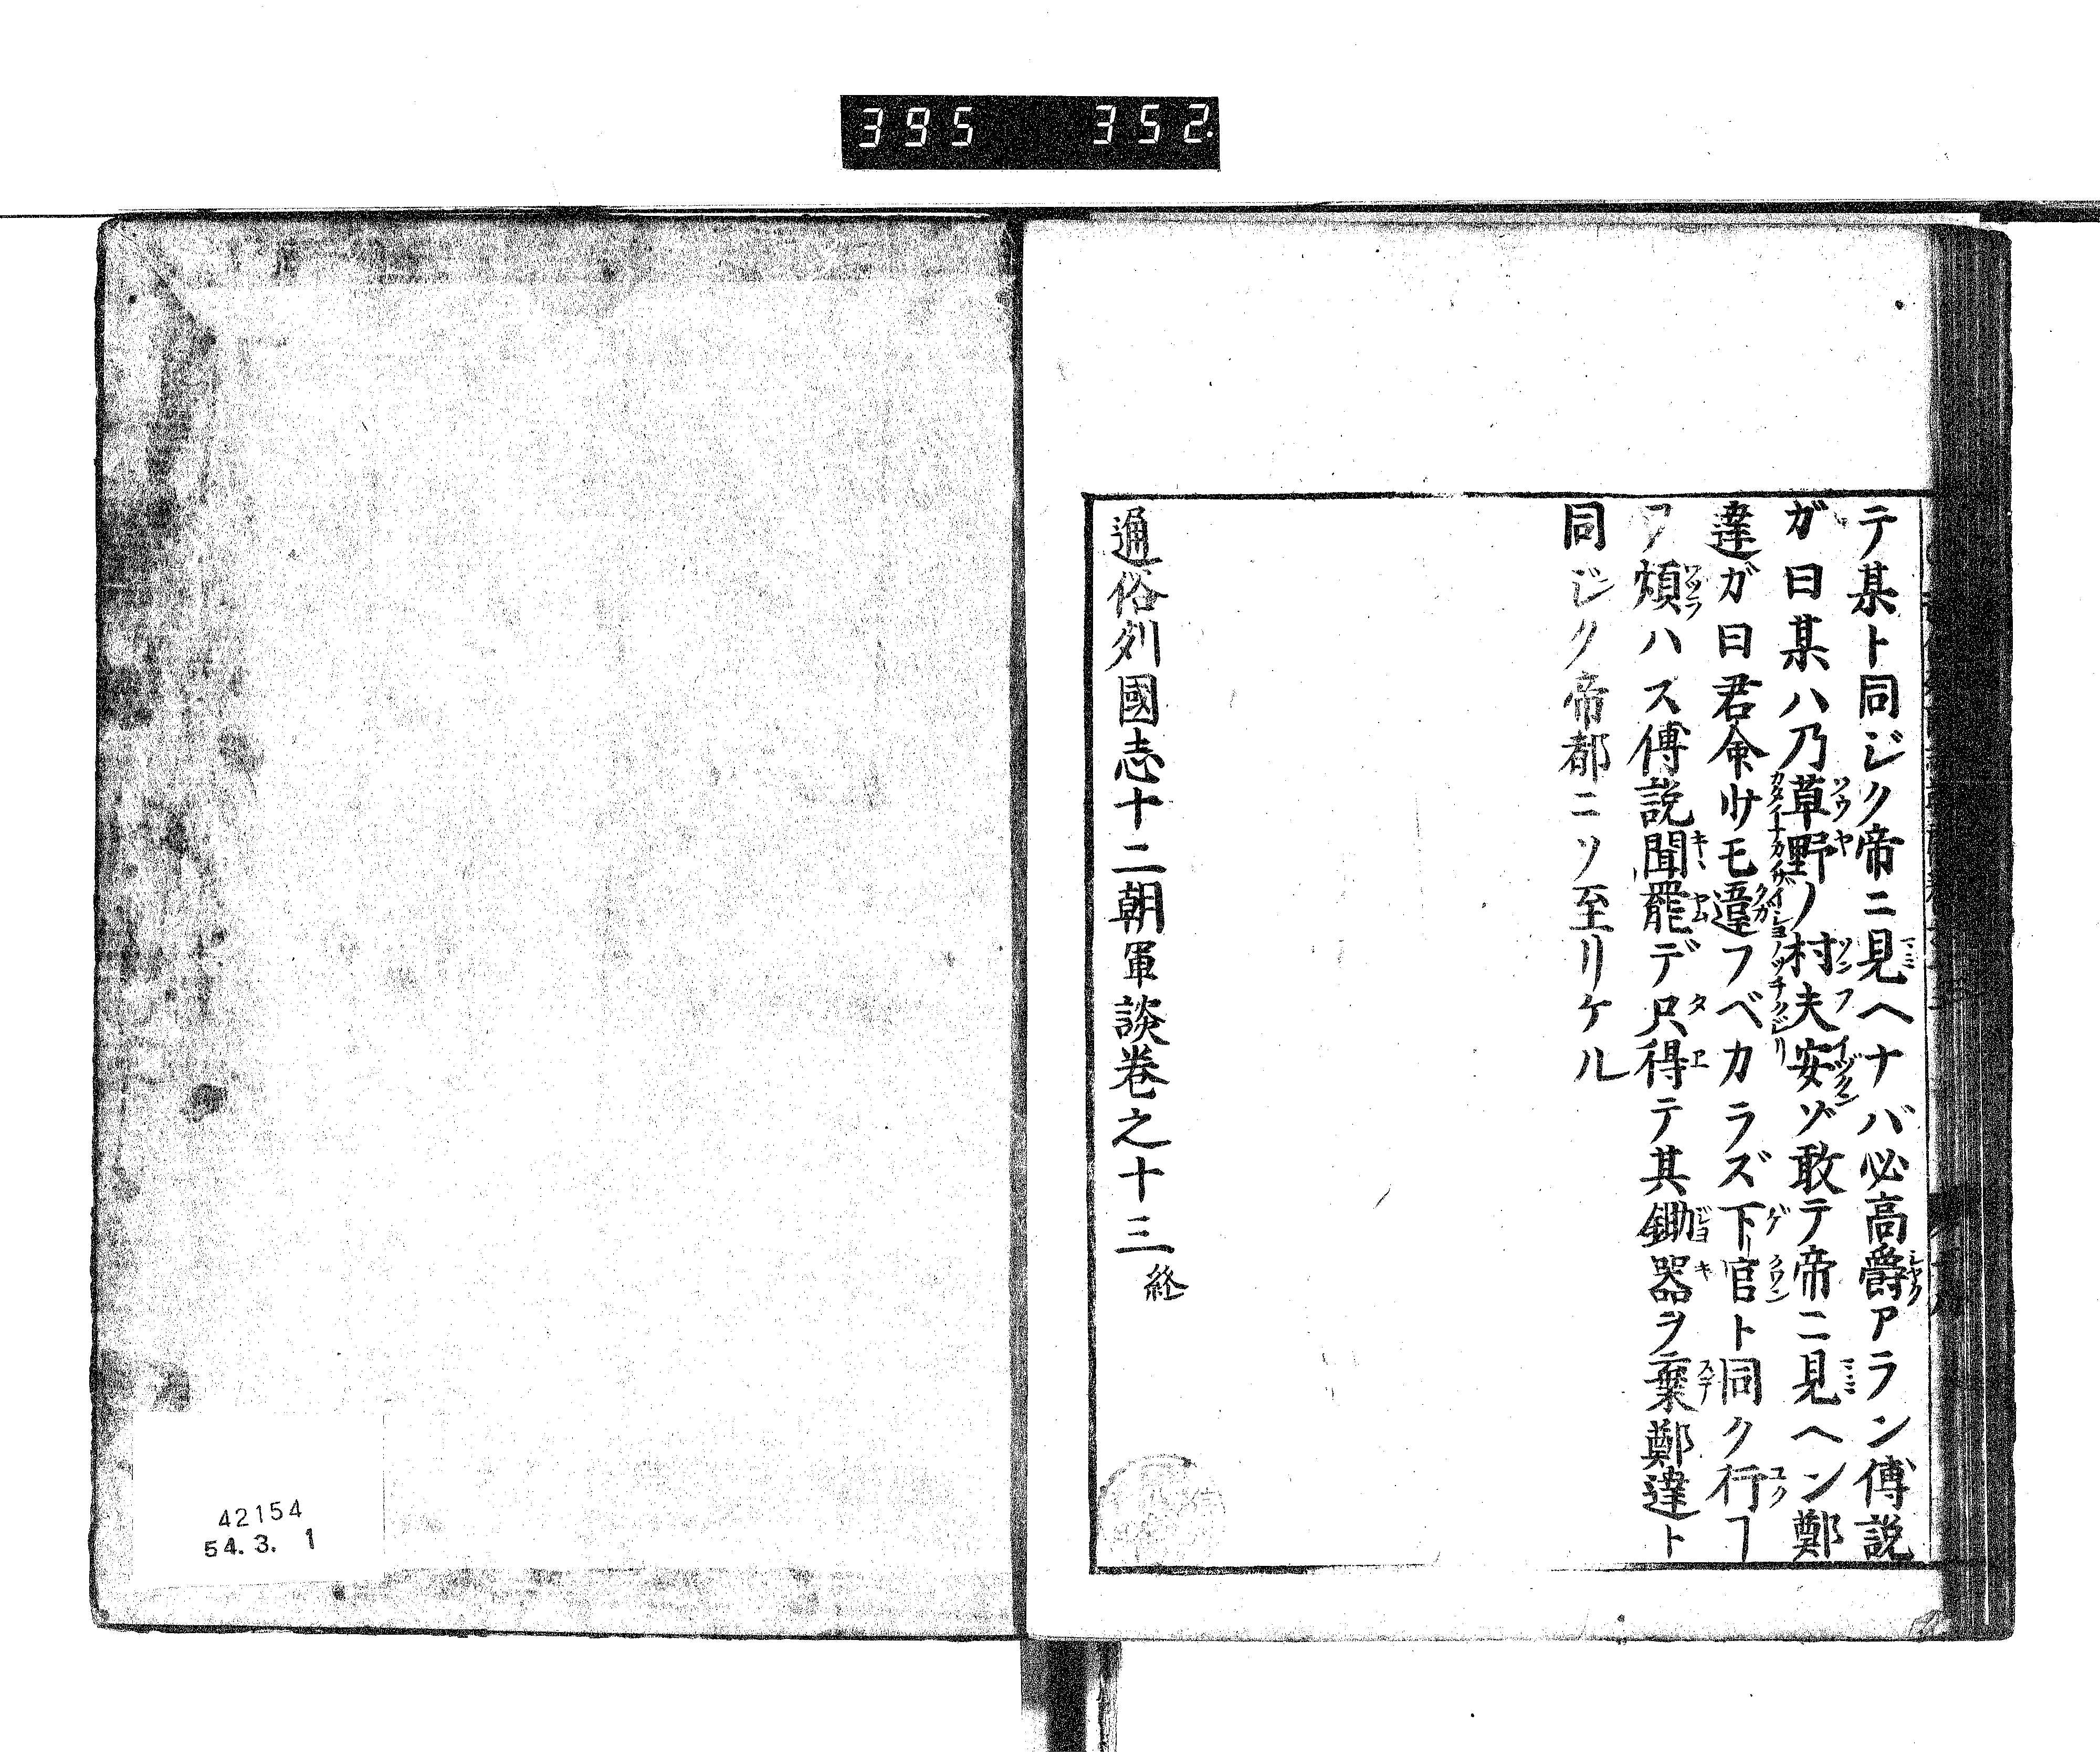 395 352.
テ某ト同ジク帝ニ見ヘナバ必高爵アラン傅説
ガ曰某ハ乃草野ノ村夫安ゾ敢テ帝ニ見ヘン鄭
達ガ曰君命サモ違フベカラズ下官ト同ク行ヿ
ヲ煩ハス傅説聞罷デ只得テ其鋤器ヲ棄鄭達ト
同ジク帝都ニソ至リケル
通俗列國志十二朝軍談卷之十三終
42154
54.3. 1